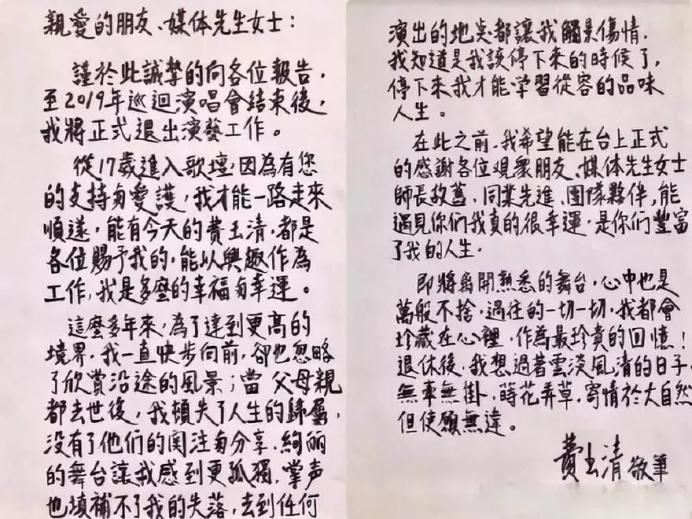 親愛的朋友、媒体先生女士：
謹於此誠摯的向各位報告，
至2019年巡迴演唱會結束後，
我將正式退出演藝工作。
從17歲進入歌壇，因為有您
的支持与愛護，我才能一路走來
順遂，能有今天的費玉清，都是
各位賜予我的，能以興趣作為
工作，我是多麼的幸福与幸運。
這麼多年來，為了達到更高的
境界，我一直快步向前，卻也忽略
了欣賞沿途的風景；當 父母親
都去世後，我頓失了人生的歸屬，
没有了他們的関注与分享，絢丽
的舞台讓我感到更孤獨，掌声
也填補不了我的失落，去到任何
演出的地点都讓我觸景傷情，
我知道是我該停下來的時候了，
停下來我才能学習從容的品味
人生。
在此之前，我希望能在台上正式
的感謝各位观衆朋友、媒体先生女士
師長故舊、同業先進、團隊夥伴，能
遇見你们我真的很幸運，是你们豐富
了我的人生。
即將離開熟悉的舞台，心中也是
萬般不捨，過往的一切一切，我都會
珍藏在心裡，作為最珍貴的回憶！
退休後，我想過着雲淡風清的日子，
無牽無掛，蒔花弄草，寄情於大自然
但使願無違。
費玉清 敬筆